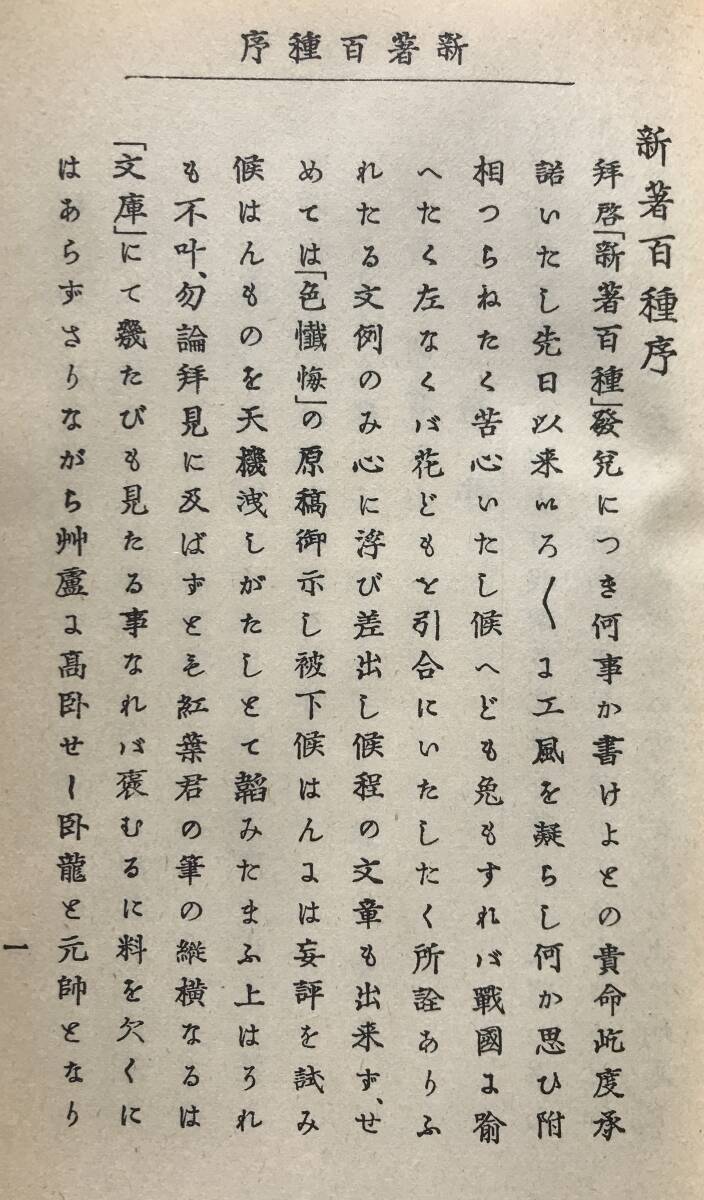 新著百種序
新著百種序
拜啓「新著百種」發兌につき何事か書けよとの貴命屹度承
諾いたし先日以来いろ〱に工風を凝らし何か思ひ附
相つらねたく苦心いたし候へども兔もすれば戰國に踰
へたく左なくば花どもを引合にいたしたく所詮ありふ
れたる文例のみ心に浮び差出し候程の文章も出来ず、せ
めては「色懺悔」の原稿御示し被下候はんには妄評を試み
候はんものを天機洩しがたしとて韜みたまふ上はそれ
も不叶、勿論拜見に及ばずとも紅葉君の筆の縱橫なるは
「文庫」にて幾たびも見たる事なれば褒むるに料を欠くに
はあらずさりながら艸盧に高臥せし臥龍を元帥となり
一